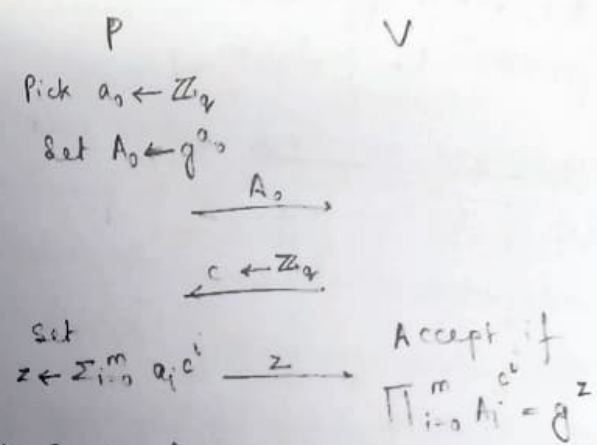 P V
Pick a₀ ← ℤ_q
Set A₀ ← g^{a₀}
A₀
c ← ℤ_q
Set
z ← Σ_{i=0}^m a_i c^i
z
Accept if
∏_{i=0}^m A_i^{c^i} = g^z